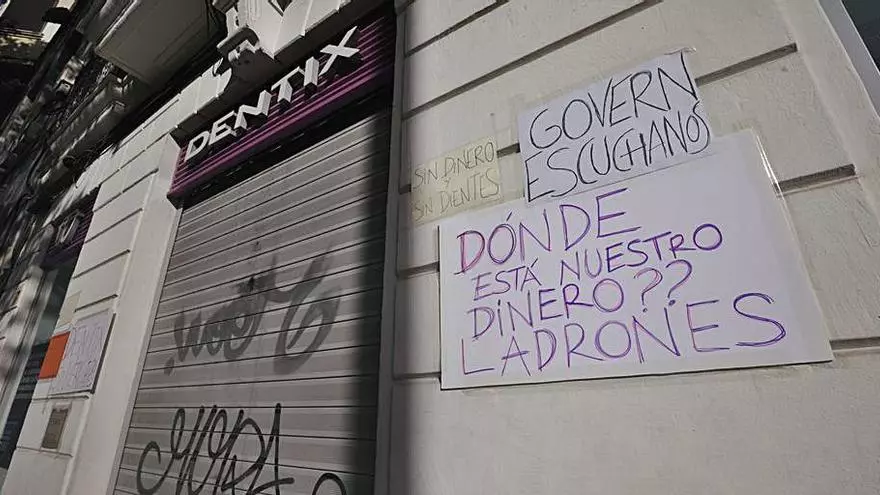 DENTIX
SIN DINERO
Y
SIN DIENTES
GOVERN
ESCUCHANOS
DÓNDE
ESTÁ NUESTRO
DINERO??
LADRONES